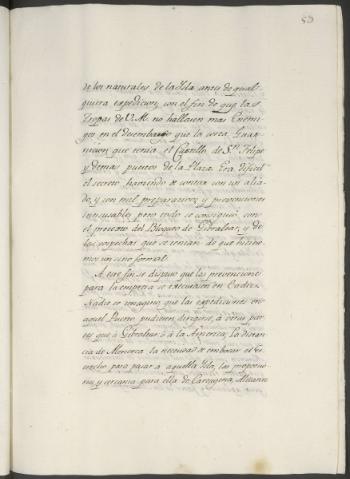 53
de los naturales de la Isla antes de qual
quiera expedicion, con el fin de que las
Tropas de V.M. no hallasen mas Enemi
gos en el desembarco que la corta Guar
nicion que tenia el Castillo de Sn. Felipe
y demas puestos de la Plaza. Era dificil
el secreto haviendo de contar con un alia
do, y con mil preparativos y prevenciones
inescusables pero todo se consiguió con
el pretexto del Bloqueo de Gibraltar, y de
las sospechas que se tenian de que hiciese
mos un sitio formal.
A este fin se dispuso que las prevenciones
para la empresa se executasen en Cadiz.
Nadie se imagino que las expediciones en
aquel Puerto pudiesen dirigirse á otras par
tes que á Gibraltar ó á la America. La distan
cia de Menorca, la necesidad de embocar el Es
trecho para pasar a aquella Isla, las proporcio
nes y cercania para ella de Cartagena, Alicante